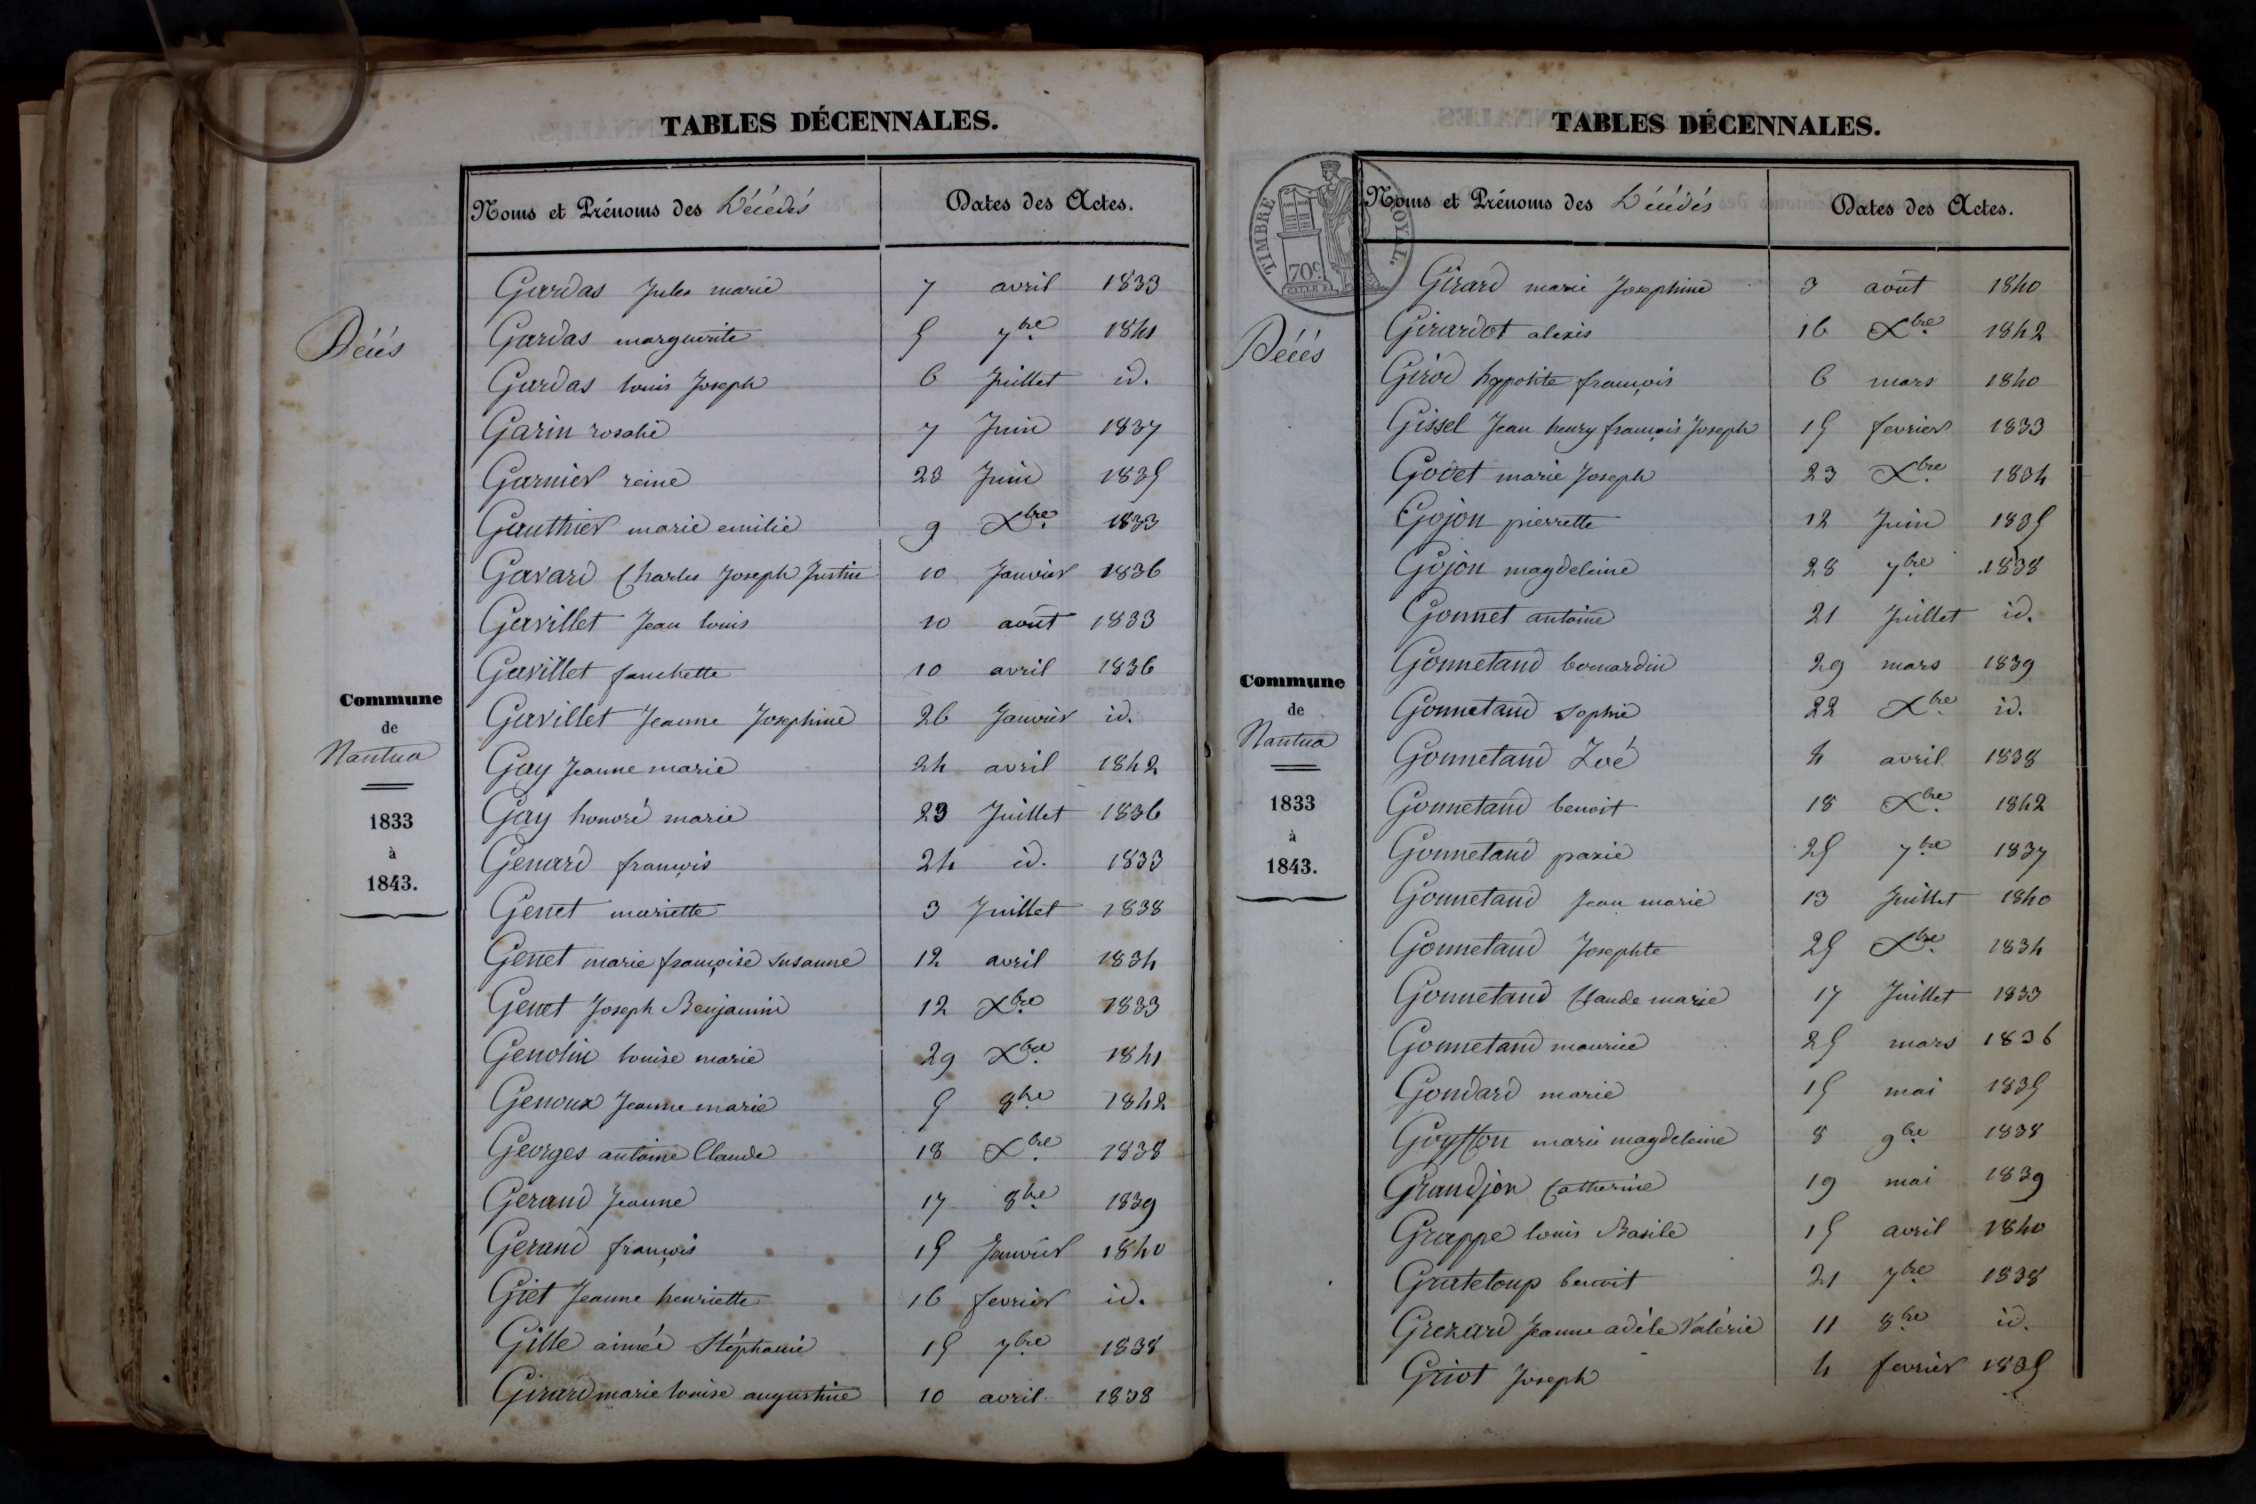 TABLES DÉCENNALES.
Noms et Prénoms des Décédés Dates des Actes.
Décés
Commune
de
Nantua
1833
à
1843.
Gardas Jules marie 7 avril 1833
Gardas marguerite 5 7bre 1841
Gardas louis Joseph 6 Juillet id.
Garin rosalie 7 Juin 1837
Garnier reine 23 Juin 1835
Gauthier marie emilie 9 Xbre 1833
Gavard Charles Joseph Justin 10 Janvier 1836
Gavillet Jean louis 10 août 1833
Gavillet fanchette 10 avril 1836
Gavillet Jeanne Josephine 26 Janvier id.
Gay Jeanne marie 24 avril 1842
Gay honoré marie 23 Juillet 1836
Genard françois 24 id. 1833
Genet mariette 3 Juillet 1838
Genet marie françoise susanne 12 avril 1834
Genet Joseph Benjamin 12 Xbre 1833
Genolin louise marie 29 Xbre 1841
Genoux Jeanne marie 5 8bre 1842
Georges antoine Claude 18 Xbre 1838
Geraud Jeanne 17 8bre 1839
Geraud françois 15 Janvier 1840
Giet Jeanne henriette 16 fevrier id.
Gille aimée Stéphanie 15 7bre 1838
Girard marie louise augustine 10 avril 1838
TABLES DÉCENNALES.
TIMBRE ROYAL.
70c
Noms et Prénoms des Décédés Dates des Actes.
Décés
Commune
de
Nantua
1833
à
1843.
Girard marie Josephine 3 août 1840
Girardot alexis 16 Xbre 1842
Girod hyppolite françois 6 mars 1840
Gissel Jean henry françois Joseph 15 fevrier 1833
Godet marie Joseph 23 Xbre 1834
Gojon pierrette 12 Juin 1835
Gojon magdeleine 28 7bre 1838
Gonnet antoine 21 Juillet id.
Gonnetand bernardin 29 mars 1839
Gonnetand sophie 22 Xbre id.
Gonnetand Zoé 4 avril 1838
Gonnetand benoit 18 Xbre 1842
Gonnetand paxie 25 7bre 1837
Gonnetand Jean marie 13 Juillet 1840
Gonnetand Josephte 25 Xbre 1834
Gonnetand Claude marie 17 Juillet 1833
Gonnetand maurice 25 mars 1836
Gondard marie 15 mai 1835
Goyffon marie magdeleine 8 9bre 1838
Grandjon Catherine 19 mai 1839
Grappe louis Basile 15 avril 1840
Grateloup benoit 21 7bre 1838
Grezard Jeanne adèle Valérie 11 8bre id.
Griot Joseph 4 fevrier 1835